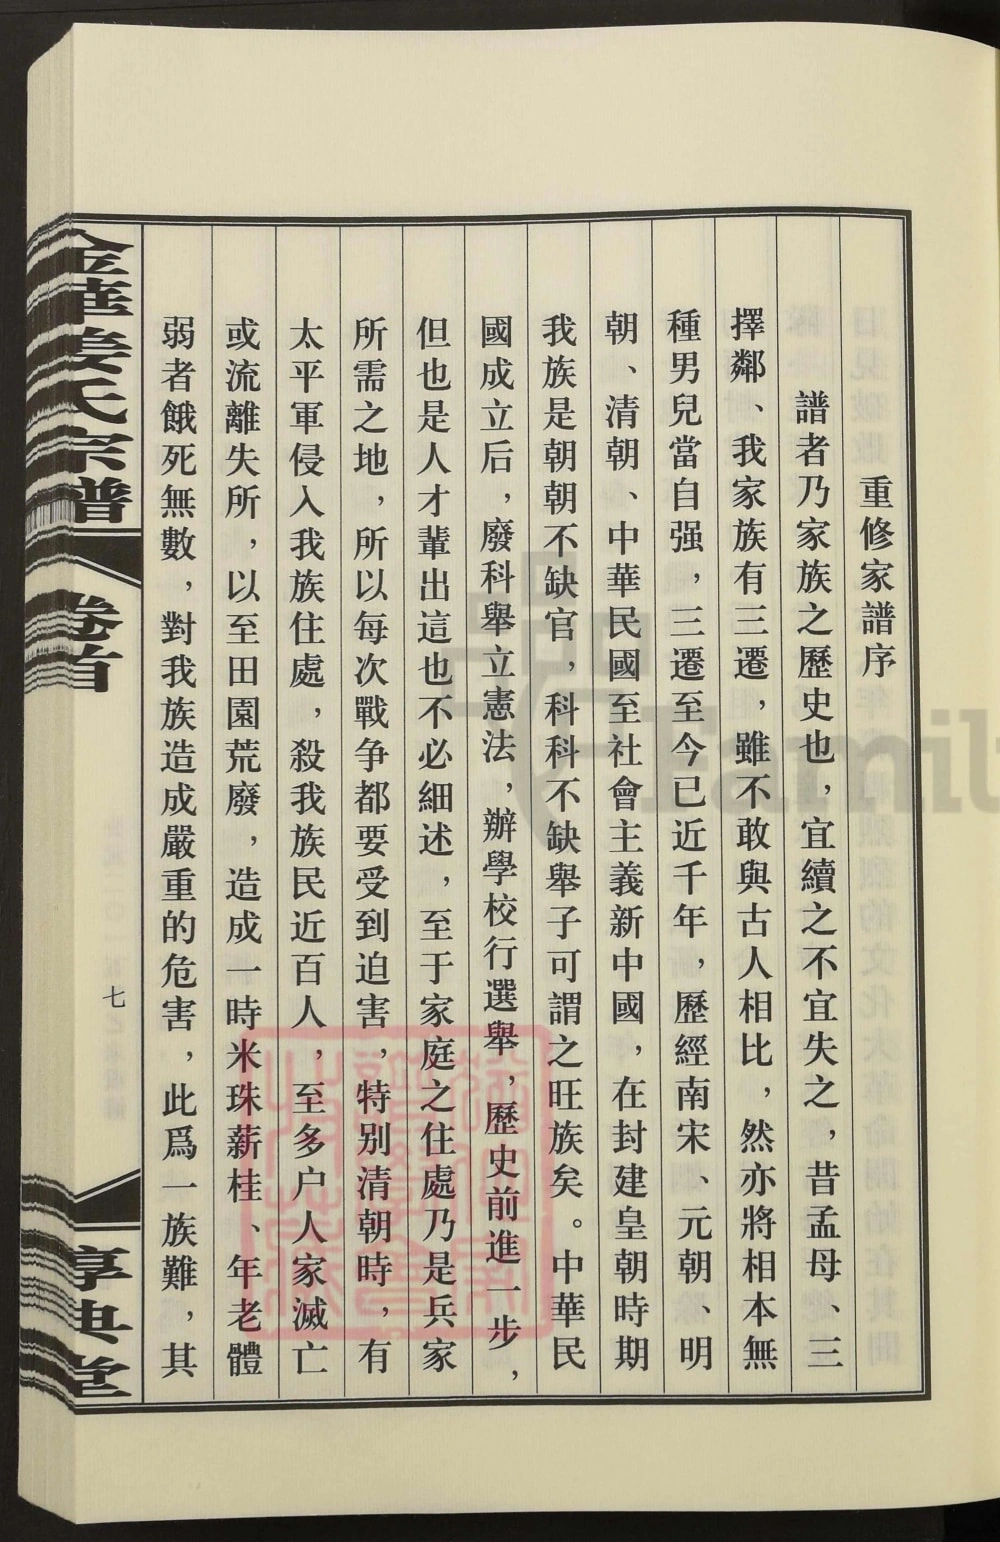 重修家譜序
譜者乃家族之歷史也，宜續之不宜失之，昔孟母、三
擇鄰、我家族有三遷，雖不敢與古人相比，然亦將相本無
種男兒當自强，三遷至今已近千年，歷經南宋、元朝、明
朝、清朝、中華民國至社會主義新中國，在封建皇朝時期
我族是朝朝不缺官，科科不缺舉子可謂之旺族矣。中華民
國成立后，廢科舉立憲法，辦學校行選舉，歷史前進一步，
但也是人才輩出這也不必細述，至于家庭之住處乃是兵家
所需之地，所以每次戰争都要受到迫害，特别清朝時，有
太平軍侵入我族住處，殺我族民近百人，至多户人家滅亡
或流離失所，以至田園荒廢，造成一時米珠薪桂、年老體
弱者餓死無數，對我族造成嚴重的危害，此爲一族難，其
金華姜氏宗譜
卷首
七
享典堂
Famil